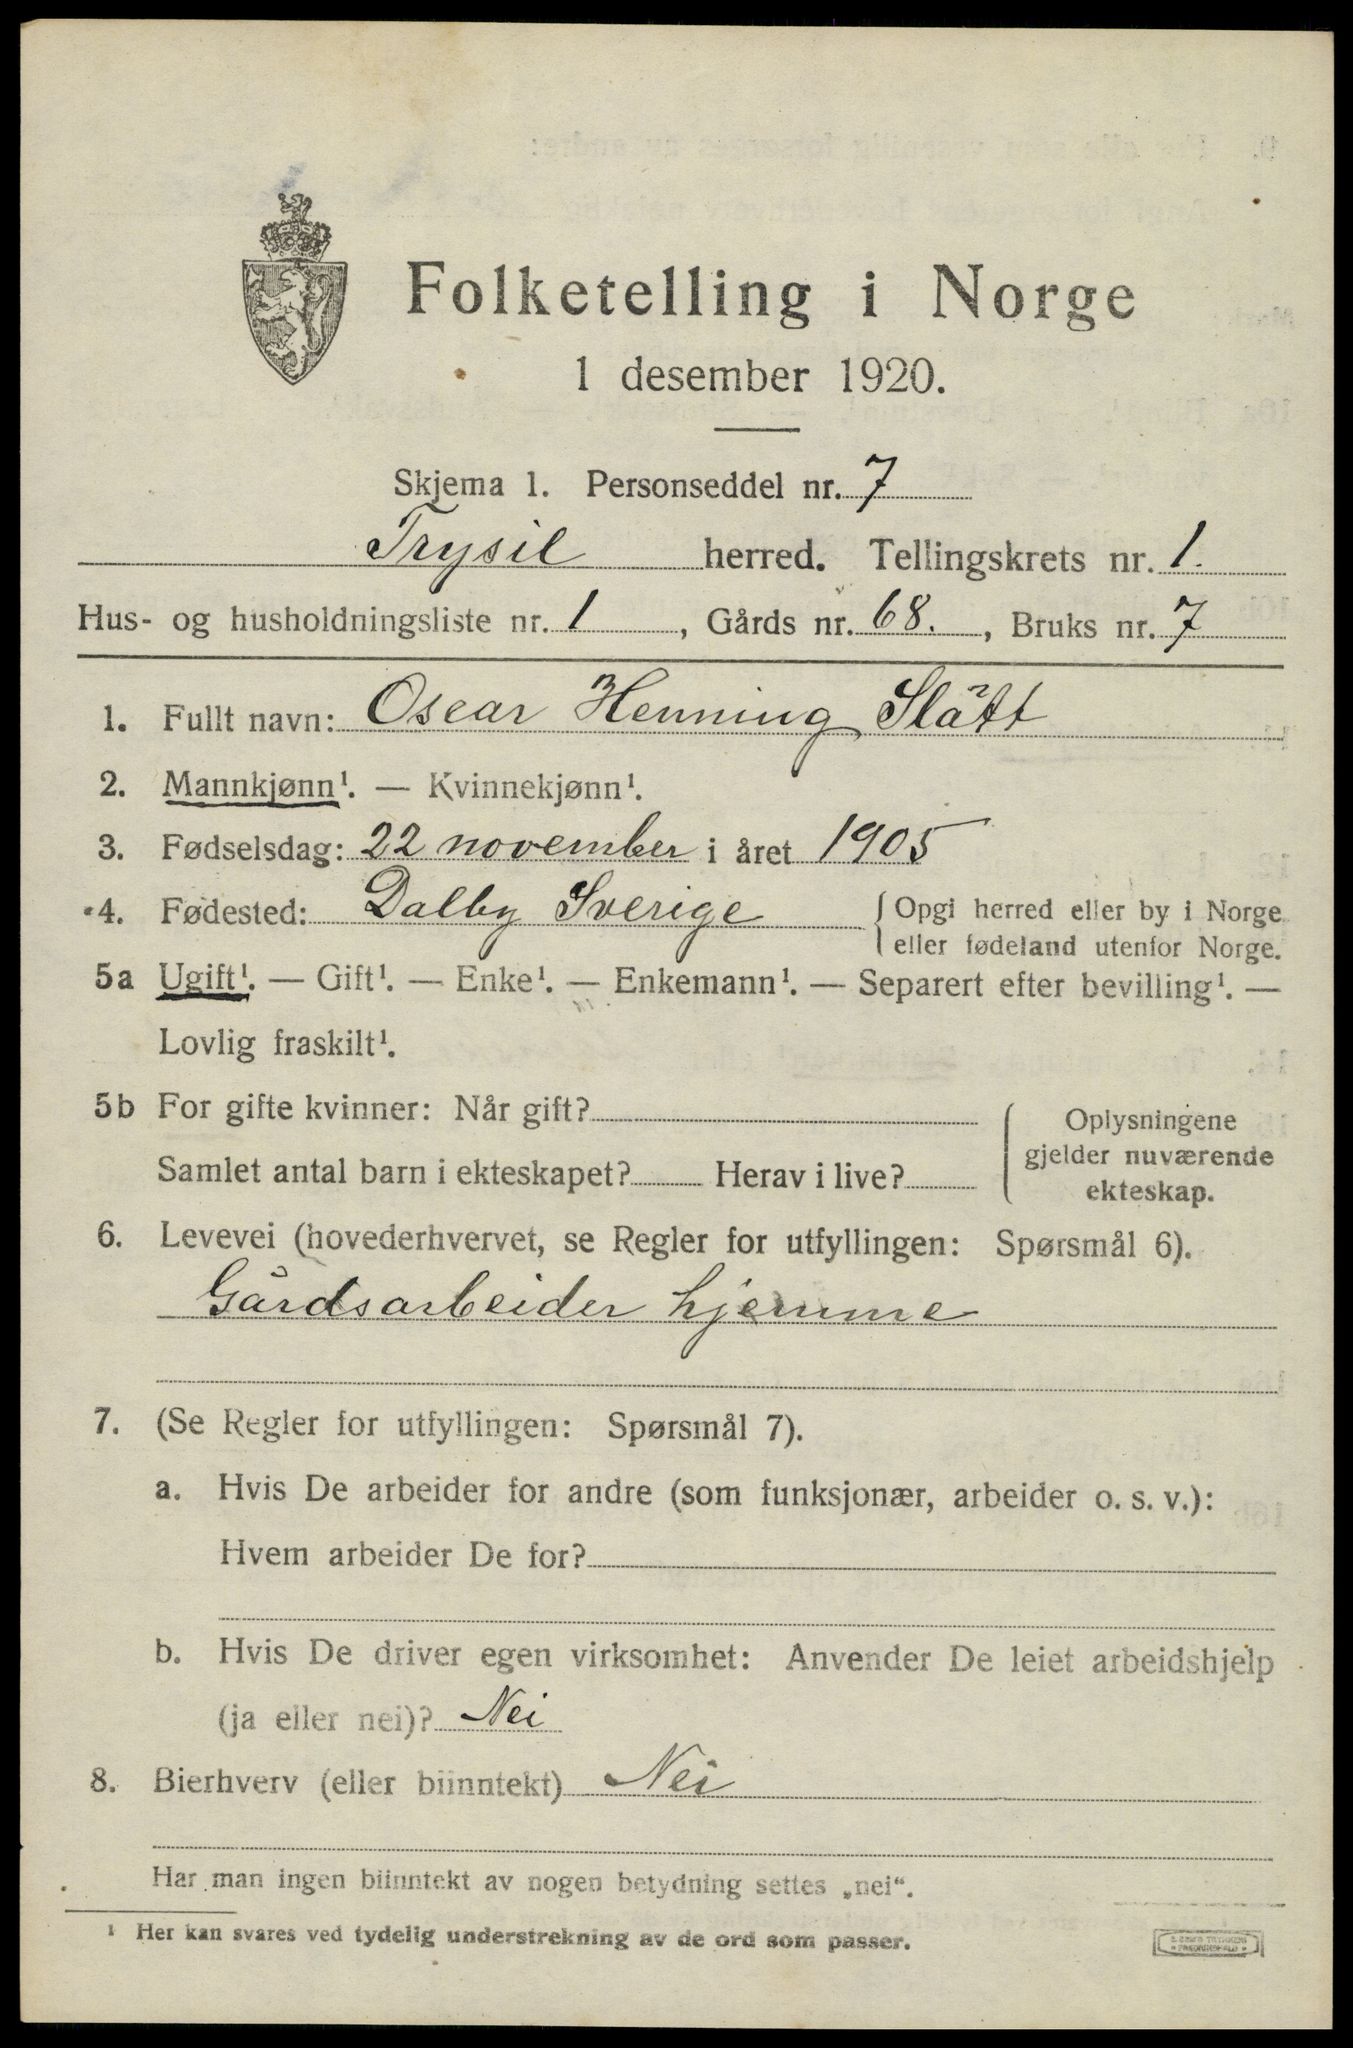 Folketelling i Norge
1 desember 1920.
Skjema 1. Personseddel nr. 7
Trysil herred. Tellingskrets nr. 1.
Hus- og husholdningsliste nr. 1, Gårds nr. 68., Bruks nr. 7
1. Fullt navn: Oscar Henning Slått
2. Mannkjønn¹. — Kvinnekjønn¹.
3. Fødselsdag: 22 november i året 1905
4. Fødested: Dalby Sverige {Opgi herred eller by i Norge
eller fødeland utenfor Norge.
5a Ugift¹. — Gift¹. — Enke¹. — Enkemann¹. — Separert efter bevilling¹. —
Lovlig fraskilt¹.
5b For gifte kvinner: Når gift?
Samlet antal barn i ekteskapet? Herav i live?
Oplysningene
gjelder nuværende
ekteskap.
6. Levevei (hovederhvervet, se Regler for utfyllingen: Spørsmål 6).
Gårdsarbeider hjemme
7. (Se Regler for utfyllingen: Spørsmål 7).
a. Hvis De arbeider for andre (som funksjonær, arbeider o. s. v.):
Hvem arbeider De for?
b. Hvis De driver egen virksomhet: Anvender De leiet arbeidshjelp
(ja eller nei)? Nei
8. Bierhverv (eller biinntekt) Nei
Har man ingen biinntekt av nogen betydning settes „nei".
¹ Her kan svares ved tydelig understrekning av de ord som passer.